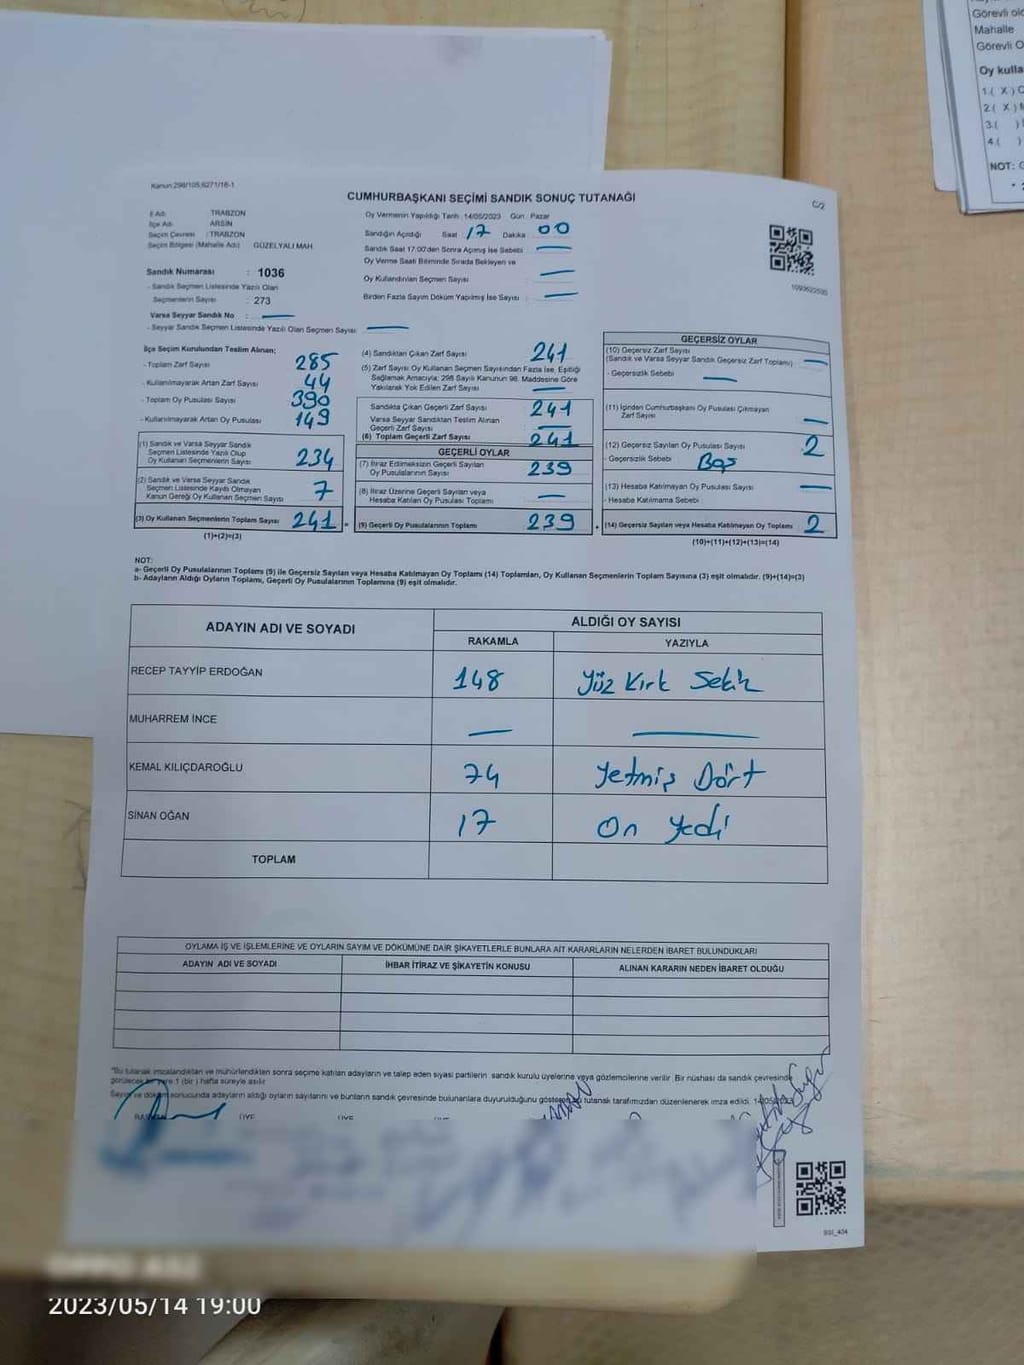 Görevli
Mahalle
Görevli O
Oy kulla
1.( X ) C
2.( X )
3.( )
4.( )
NOT:
Kanun:298/105,6271/16-1
CUMHURBAŞKANI SEÇİMİ SANDIK SONUÇ TUTANAĞI
C/2
İl Adı : TRABZON
İlçe Adı : ARSİN
Seçim Çevresi : TRABZON
Seçim Bölgesi (Mahalle Adı) GÜZELYALI MAH.
Sandık Numarası : 1036
- Sandık Seçmen Listesinde Yazılı Olan
Seçmenlerin Sayısı : 273
Varsa Seyyar Sandık No : —
- Seyyar Sandık Seçmen Listesinde Yazılı Olan Seçmen Sayısı : —
Oy Vermenin Yapıldığı Tarih : 14/05/2023 Gün : Pazar
Sandığın Açıldığı Saat 17 Dakika 00
Sandık Saat 17:00'den Sonra Açılmış İse Sebebi : —
Oy Verme Saati Bitiminde Sırada Bekleyen ve
Oy Kullandırılan Seçmen Sayısı : —
Birden Fazla Sayım Döküm Yapılmış İse Sayısı : —
İlçe Seçim Kurulundan Teslim Alınan;
- Toplam Zarf Sayısı : 285
- Kullanılmayarak Artan Zarf Sayısı : 44
- Toplam Oy Pusulası Sayısı : 390
- Kullanılmayarak Artan Oy Pusulası : 149
(1) Sandık ve Varsa Seyyar Sandık
Seçmen Listesinde Yazılı Olup
Oy Kullanan Seçmenlerin Sayısı : 234
(2) Sandık ve Varsa Seyyar Sandık
Seçmen Listesinde Kayıtlı Olmayan
Kanun Gereği Oy Kullanan Seçmen Sayısı : 7
(3) Oy Kullanan Seçmenlerin Toplam Sayısı : 241 =
(1)+(2)=(3)
(4) Sandıktan Çıkan Zarf Sayısı : 241
(5) Zarf Sayısı Oy Kullanan Seçmen Sayısından Fazla İse, Eşitliği
Sağlamak Amacıyla; 298 Sayılı Kanunun 98. Maddesine Göre
Yakılarak Yok Edilen Zarf Sayısı : —
Sandıkta Çıkan Geçerli Zarf Sayısı : 241
Varsa Seyyar Sandıktan Teslim Alınan
Geçerli Zarf Sayısı : —
(6) Toplam Geçerli Zarf Sayısı : 241
GEÇERLİ OYLAR
(7) İtiraz Edilmeksizin Geçerli Sayılan
Oy Pusulalarının Sayısı : 239
(8) İtiraz Üzerine Geçerli Sayılan veya
Hesaba Katılan Oy Pusulası Toplamı : —
(9) Geçerli Oy Pusulalarının Toplamı : 239 +
GEÇERSİZ OYLAR
(10) Geçersiz Zarf Sayısı
(Sandık ve Varsa Seyyar Sandık Geçersiz Zarf Toplamı) : —
- Geçersizlik Sebebi : —
(11) İçinden Cumhurbaşkanı Oy Pusulası Çıkmayan
Zarf Sayısı : —
(12) Geçersiz Sayılan Oy Pusulası Sayısı : 2
- Geçersizlik Sebebi : Boş
(13) Hesaba Katılmayan Oy Pusulası Sayısı : —
- Hesaba Katılmama Sebebi :
(14) Geçersiz Sayılan veya Hesaba Katılmayan Oy Toplamı : 2
(10)+(11)+(12)+(13)=(14)
NOT:
a- Geçerli Oy Pusulalarının Toplamı (9) ile Geçersiz Sayılan veya Hesaba Katılmayan Oy Toplamı (14) Toplamları, Oy Kullanan Seçmenlerin Toplam Sayısına (3) eşit olmalıdır. (9)+(14)=(3)
b- Adayların Aldığı Oyların Toplamı, Geçerli Oy Pusulalarının Toplamına (9) eşit olmalıdır.
ADAYIN ADI VE SOYADI
ALDIĞI OY SAYISI
RAKAMLA YAZIYLA
RECEP TAYYİP ERDOĞAN 148 Yüz Kırk Sekiz
MUHARREM İNCE — —
KEMAL KILIÇDAROĞLU 74 Yetmiş Dört
SİNAN OĞAN 17 On Yedi
TOPLAM
OYLAMA İŞ VE İŞLEMLERİNE VE OYLARIN SAYIM VE DÖKÜMÜNE DAİR ŞİKAYETLERLE BUNLARA AİT KARARLARIN NELERDEN İBARET BULUNDUKLARI
ADAYIN ADI VE SOYADI İHBAR İTİRAZ VE ŞİKAYETİN KONUSU ALINAN KARARIN NEDEN İBARET OLDUĞU
"Bu tutanak imzalandıktan ve mühürlendikten sonra seçime katılan adayların ve talep eden siyasi partilerin sandık kurulu üyelerine veya gözlemcilerine verilir. Bir nüshası da sandık çevresinde
görülecek bir yere 1 (bir) hafta süreyle asılır.
Sayım ve döküm sonucunda adayların aldığı oyların sayılarını ve bunların sandık çevresinde bulunanlara duyurulduğunu gösteren bu tutanak tarafımızdan düzenlenerek imza edildi. 14/05/2023
ÜYE ÜYE
2023/05/14 19:00